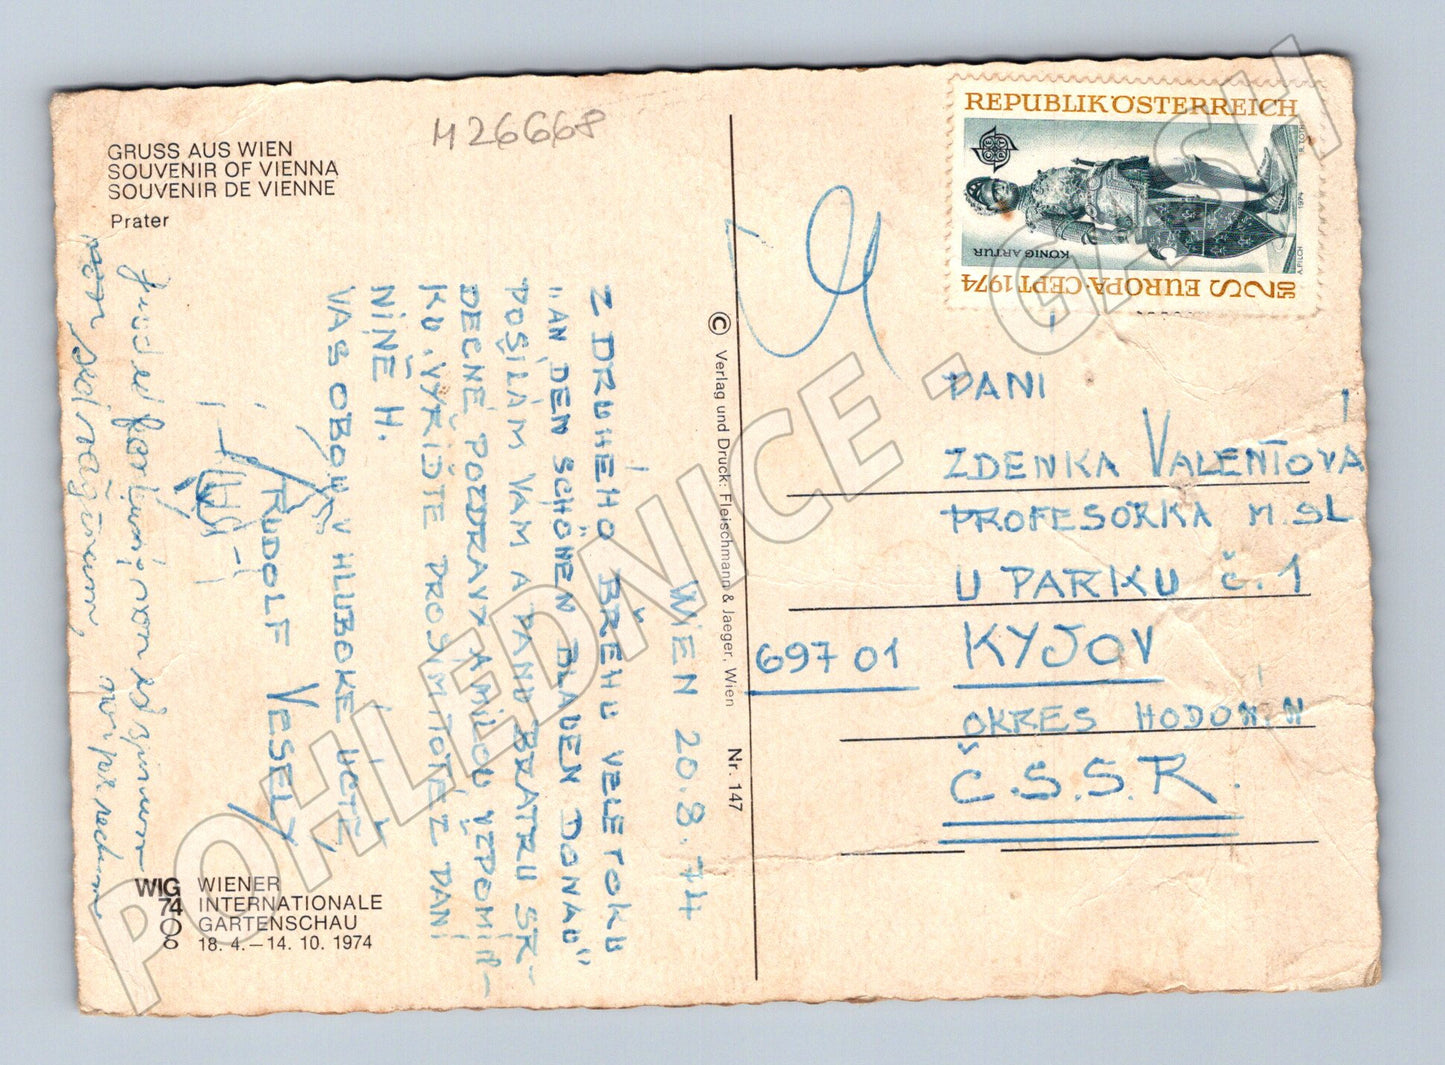 GRUSS AUS WIEN
SOUVENIR OF VIENNA
SOUVENIR DE VIENNE
Prater
M26668
WIEN 20.8.74
Z DRUHEHO BŘEHU VELETOKU
"AN DEN SCHÖNEN BLAUEN DONAU"
POSÍLÁM VAM A PANU BRATRU SR-
DEČNÉ POZDRAVY A MILOU VZPOMÍN-
KU. VYŘIĎTE PROSÍM TOTEŽ PANÍ
NINĚ H.
VÁS OBOU V HLUBOKÉ ÚCTĚ
RUDOLF VESELÝ
WIG
74
WIENER
INTERNATIONALE
GARTENSCHAU
18. 4. – 14. 10. 1974
© Verlag und Druck: Fleischmann & Jaeger, Wien
Nr. 147
REPUBLIK ÖSTERREICH
KÖNIG ARTUR
A.PILCH
1974
S 2.50 EUROPA·CEPT 1974
PANI
ZDENKA VALENTOVÁ
PROFESORKA M.SL
U PARKU č.1
697 01 KYJOV
OKRES HODONÍN
Č.S.S.R.
POHLEDNICE - GASH